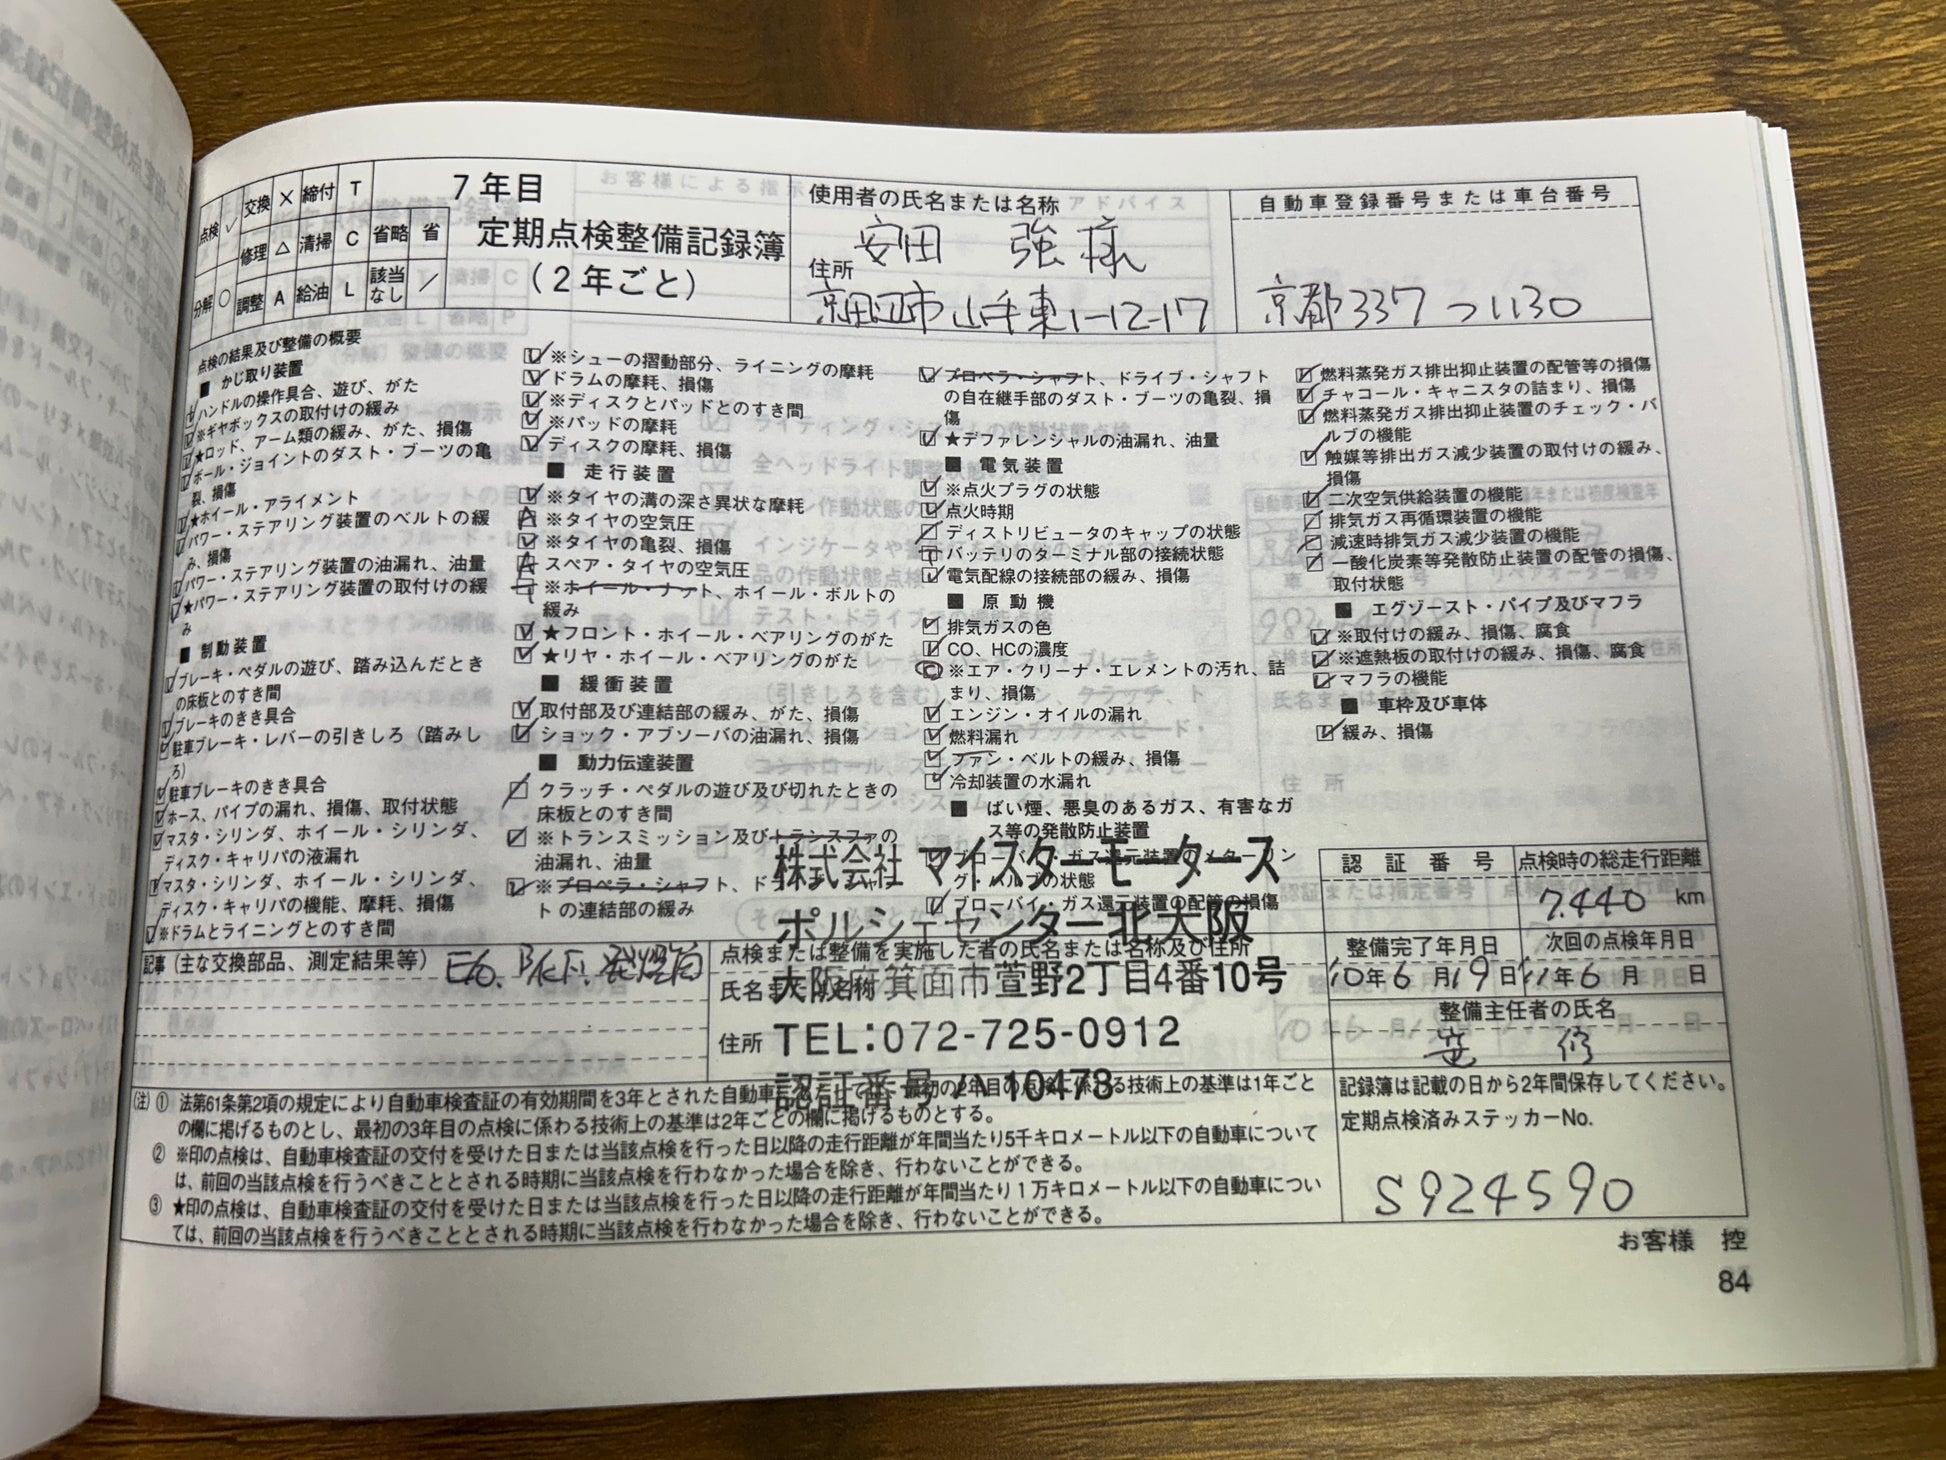 点検 ✓ 交換 × 締付 T
修理 △ 清掃 C 省略 省
分解 ○ 調整 A 給油 L 該当なし /
7年目
定期点検整備記録簿
(2年ごと)
使用者の氏名または名称
安田 強 様
住所
京田辺市山手東1-12-17
自動車登録番号または車台番号
京都337つ1130
点検の結果及び整備の概要
■ かじ取り装置
ハンドルの操作具合、遊び、がた
※ギヤボックスの取付けの緩み
★ロッド、アーム類の緩み、がた、損傷
ボール・ジョイントのダスト・ブーツの亀
裂、損傷
★ホイール・アライメント
パワー・ステアリング装置のベルトの緩
み、損傷
パワー・ステアリング装置の油漏れ、油量
★パワー・ステアリング装置の取付けの緩
み
■ 制動装置
ブレーキ・ペダルの遊び、踏み込んだとき
の床板とのすき間
ブレーキのきき具合
駐車ブレーキ・レバーの引きしろ(踏みし
ろ)
駐車ブレーキのきき具合
ホース、パイプの漏れ、損傷、取付状態
マスタ・シリンダ、ホイール・シリンダ、
ディスク・キャリパの液漏れ
マスタ・シリンダ、ホイール・シリンダ、
ディスク・キャリパの機能、摩耗、損傷
※ドラムとライニングとのすき間
※シューの摺動部分、ライニングの摩耗
ドラムの摩耗、損傷
※ディスクとパッドとのすき間
※パッドの摩耗
ディスクの摩耗、損傷
■ 走行装置
※タイヤの溝の深さ異状な摩耗
※タイヤの空気圧
※タイヤの亀裂、損傷
スペア・タイヤの空気圧
※ホイール・ナット、ホイール・ボルトの
緩み
★フロント・ホイール・ベアリングのがた
★リヤ・ホイール・ベアリングのがた
■ 緩衝装置
取付部及び連結部の緩み、がた、損傷
ショック・アブソーバの油漏れ、損傷
■ 動力伝達装置
クラッチ・ペダルの遊び及び切れたときの
床板とのすき間
※トランスミッション及びトランスファの
油漏れ、油量
※プロペラ・シャフト、ドライブ・シャフ
トの連結部の緩み
プロペラ・シャフト、ドライブ・シャフト
の自在継手部のダスト・ブーツの亀裂、損
傷
★デファレンシャルの油漏れ、油量
■ 電気装置
※点火プラグの状態
点火時期
ディストリビュータのキャップの状態
バッテリのターミナル部の接続状態
電気配線の接続部の緩み、損傷
■ 原動機
排気ガスの色
CO、HCの濃度
※エア・クリーナ・エレメントの汚れ、詰
まり、損傷
エンジン・オイルの漏れ
燃料漏れ
ファン・ベルトの緩み、損傷
冷却装置の水漏れ
■ ばい煙、悪臭のあるガス、有害なガ
ス等の発散防止装置
ブローバイ・ガス還元装置のメターリン
グ・バルブの状態
ブローバイ・ガス還元装置の配管の損傷
燃料蒸発ガス排出抑止装置の配管等の損傷
チャコール・キャニスタの詰まり、損傷
燃料蒸発ガス排出抑止装置のチェック・バ
ルブの機能
触媒等排出ガス減少装置の取付けの緩み、
損傷
二次空気供給装置の機能
排気ガス再循環装置の機能
減速時排気ガス減少装置の機能
一酸化炭素等発散防止装置の配管の損傷、
取付状態
■ エグゾースト・パイプ及びマフラ
※取付けの緩み、損傷、腐食
※遮熱板の取付けの緩み、損傷、腐食
マフラの機能
■ 車枠及び車体
緩み、損傷
記事(主な交換部品、測定結果等) E/O. B/KF. 発煙筒
点検または整備を実施した者の氏名または名称及び住所
氏名または名称
住所
株式会社 マイスターモータース
ポルシェセンター北大阪
大阪府箕面市萱野2丁目4番10号
TEL:072-725-0912
認証番号 ハ 10473
認証番号
点検時の総走行距離
7.440 km
整備完了年月日
10年6月19日
次回の点検年月日
11年6月 日
整備主任者の氏名
修
記録簿は記載の日から2年間保存してください。
定期点検済みステッカーNo.
S924590
(注) ① 法第61条第2項の規定により自動車検査証の有効期間を3年とされた自動車にあたっては、最初の2年目の点検に係わる技術上の基準は1年ごと
の欄に掲げるものとし、最初の3年目の点検に係わる技術上の基準は2年ごとの欄に掲げるものとする。
② ※印の点検は、自動車検査証の交付を受けた日または当該点検を行った日以降の走行距離が年間当たり5千キロメートル以下の自動車について
は、前回の当該点検を行うべきこととされる時期に当該点検を行わなかった場合を除き、行わないことができる。
③ ★印の点検は、自動車検査証の交付を受けた日または当該点検を行った日以降の走行距離が年間当たり1万キロメートル以下の自動車につい
ては、前回の当該点検を行うべきこととされる時期に当該点検を行わなかった場合を除き、行わないことができる。
お客様 控
84